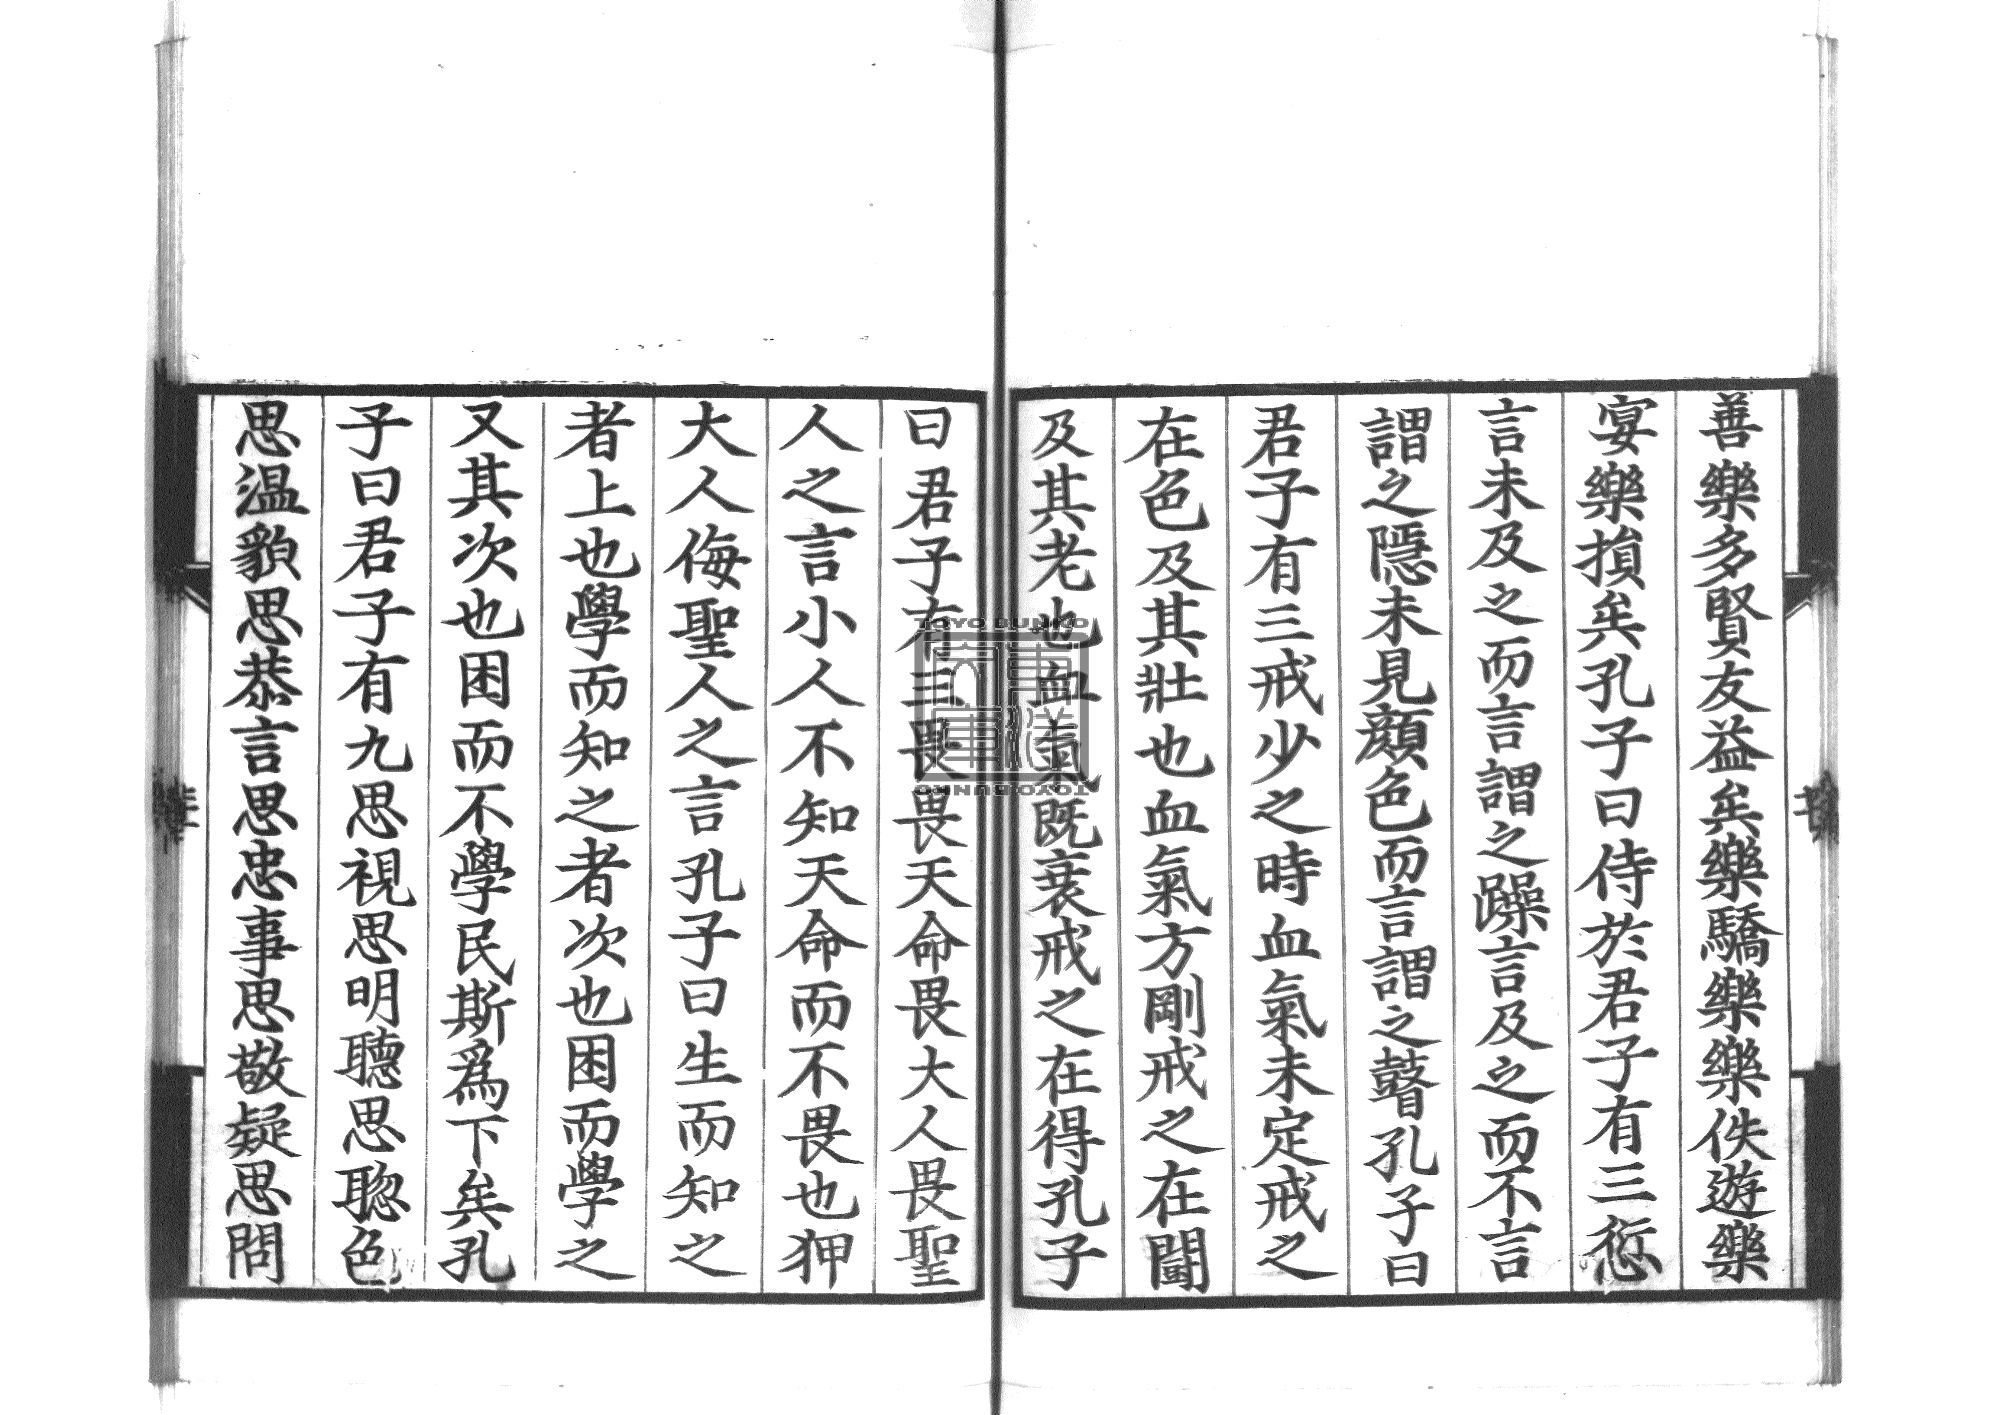 善樂多賢友益矣樂驕樂樂佚遊樂
宴樂損矣孔子曰侍於君子有三愆
言未及之而言謂之躁言及之而不言
謂之隱未見顏色而言謂之瞽孔子曰
君子有三戒少之時血氣未定戒之
在色及其壯也血氣方剛戒之在鬪
及其老也血氣既衰戒之在得孔子
曰君子有三畏畏天命畏大人畏聖
人之言小人不知天命而不畏也狎
大人侮聖人之言孔子曰生而知之
者上也學而知之者次也困而學之
又其次也困而不學民斯爲下矣孔
子曰君子有九思視思明聽思聰色
思溫貌思恭言思忠事思敬疑思問
TOYO BUNKO
TOYO BUNKO